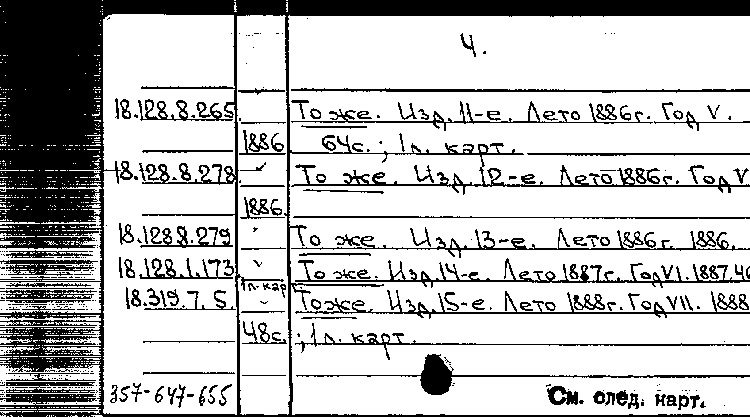 4.
18.128.8.265. То же. Изд. 11-е. Лето 1886г. Год V.
1886 64с.; 1 л. карт.
18.128.8.278 То же. Изд. 12-е. Лето 1886г. Год V
1886.
18.128.8.279 То же. Изд. 13-е. Лето 1886г. 1886.
18.128.1.173. То же. Изд. 14-е. Лето 1887г. Год VI. 1887. 40
1 л. кар
18.319.7.5. То же. Изд. 15-е. Лето 1888г. Год VII. 1888
48с. ; 1 л. карт.
357-647-655 См. след. карт.